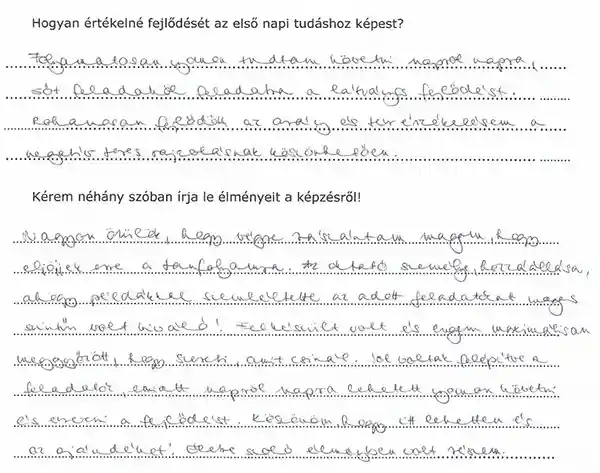 Hogyan értékelné fejlődését az első napi tudáshoz képest?
Folyamatosan nyomon tudtam követni napról napra,
sőt feladatról feladatra a látványos fejlődést.
Rohamosan fejlődött az arány és tér érzékelésem a
negatív teres rajzolásnak köszönhetően.
Kérem néhány szóban írja le élményeit a képzésről!
Nagyon örülök, hogy végre rászántam magam, hogy
eljöjjek erre a tanfolyamra. Az oktató személye, hozzáállása,
ahogy példákkal szemléltette az adott feladatokat magas
szintűn volt kiváló! Felkészült volt és engem maximálisan
meggyőzött, hogy szereti, amit csinál. Jól voltak felépítve a
feladatok, emiatt napról napra lehetett nyomon követni
és érezni a fejlődést. Köszönöm, hogy itt lehettem és
az ajándékot! Életre szóló élményben volt részem.